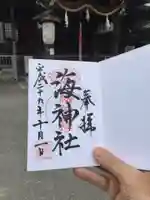 奉拝
海神社
平成二十九年十月一日